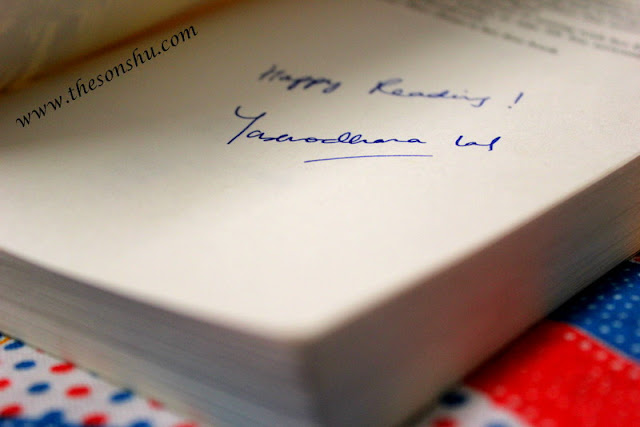 www.thesonshu.com
Happy Reading !
Yashodhara Lal